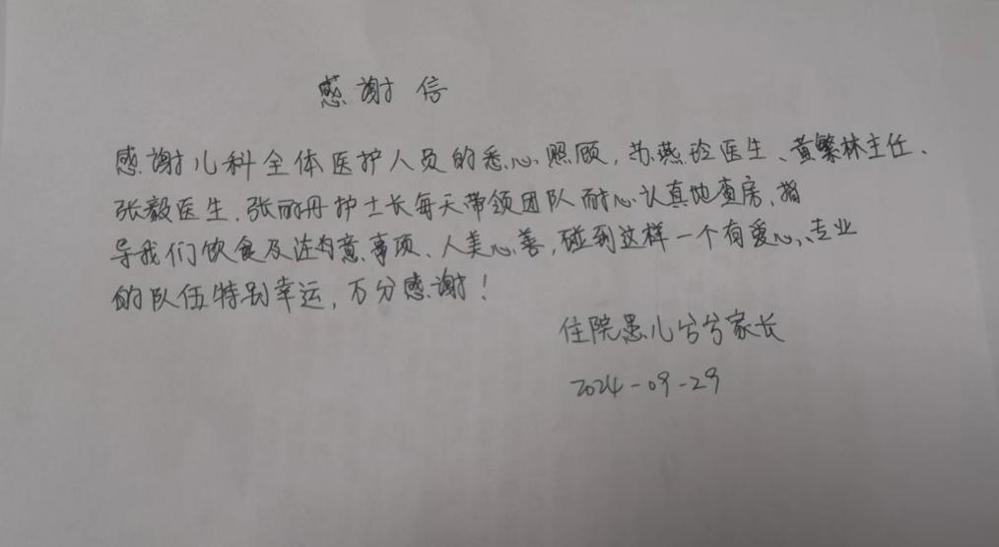 感谢信
感谢儿科全体医护人员的悉心照顾，苏燕玲医生、黄繁林主任、
张毅医生、张丽丹护士长每天带领团队耐心认真地查房，指
导我们饮食及注意事项、人美心善，碰到这样一个有爱心、专业
的队伍特别幸运，万分感谢！
住院患儿兮兮家长
2024-09-29